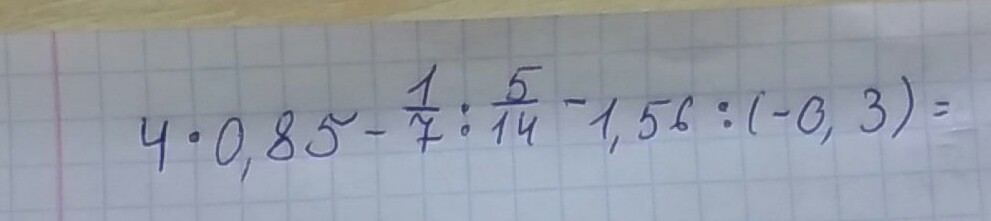 4 · 0,85 - 1/7 : 5/14 - 1,56 : (-0, 3) =